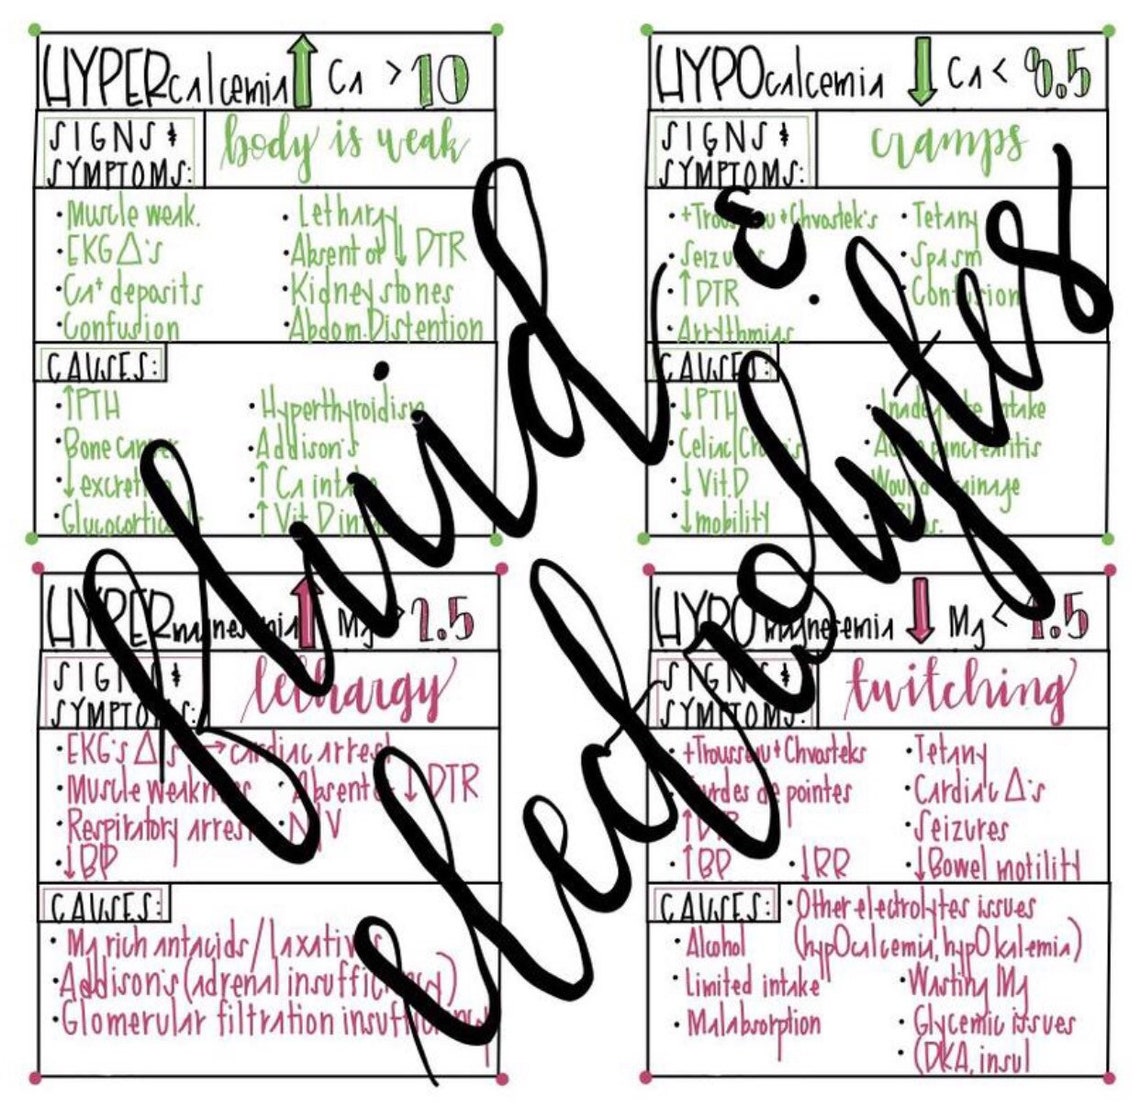 HYPERcalcemia ↑ Ca > 10
SIGNS &
SYMPTOMS:
body is weak
• Muscle weak.
• EKG Δ's
• Ca+ deposits
• Confusion
• Lethargy
• Absent or ↓ DTR
• Kidney stones
• Abdom. Distention
CAUSES:
• ↑PTH
• Bone cancer
• ↓ excretion
• Glucocorticoids
• Hyperthyroidism
• Addison's
• ↑ Ca intake
• ↑ Vit. D intake
HYPOcalcemia ↓ Ca < 8.5
SIGNS &
SYMPTOMS:
cramps
• +Trousseau + Chvostek's
• Seizures
• ↑ DTR
• Arrythmias
• Tetany
• Spasm
• Confusion
CAUSES:
• ↓PTH
• Celiac/Crohn's
• ↓ Vit. D
• ↓ mobility
• Inadequate intake
• Acute pancreatitis
• Wound drainage
HYPERmagnesemia ↑ Mg > 2.5
SIGNS &
SYMPTOMS:
lethargy
• EKG's Δ's → cardiac arrest
• Muscle weakness
• Absent or ↓ DTR
• Respiratory arrest
• N/V
• ↓BP
CAUSES:
• Mg rich antacids/laxatives
• Addison's (adrenal insufficiency)
• Glomerular filtration insufficiency
HYPOmagnesemia ↓ Mg < 1.5
SIGNS &
SYMPTOMS:
twitching
• +Trousseau + Chvosteks
• Tourdes de pointes
• ↑ DTR
• ↑BP
• ↓RR
• Tetany
• Cardiac Δ's
• Seizures
• ↓Bowel motility
CAUSES:
• Other electrolytes issues
(hypOcalcemia, hypOkalemia)
• Alcohol
• Limited intake
• Malabsorption
• Wasting Mg
• Glycemic issues
• (DKA, insul
fluid &
electrolytes